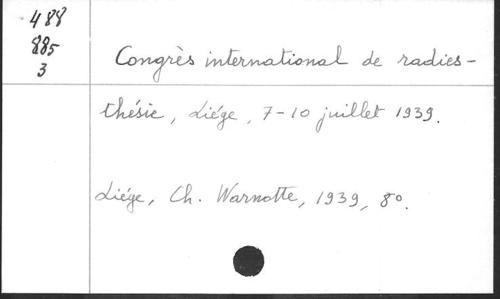 488
885
3
Congrès international de radies-
thésie, Liége, 7-10 juillet 1939.
Liége, Ch. Warnotte, 1939, 8º.